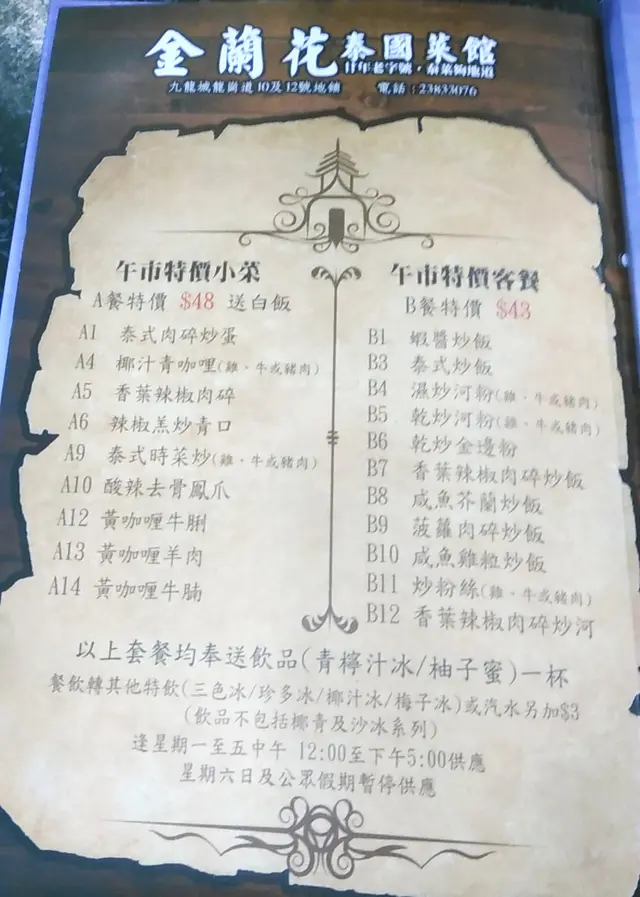 金蘭花泰國菜館
廿年老字號·泰菜夠地道
九龍城龍崗道10及12號地鋪 電話:23833076
午市特價小菜
A餐特價 $48 送白飯
A1 泰式肉碎炒蛋
A4 椰汁青咖哩(雞、牛或豬肉)
A5 香葉辣椒肉碎
A6 辣椒羔炒青口
A9 泰式時菜炒(雞、牛或豬肉)
A10 酸辣去骨鳳爪
A12 黃咖喱牛脷
A13 黃咖喱羊肉
A14 黃咖喱牛腩
午市特價客餐
B餐特價 $43
B1 蝦醬炒飯
B3 泰式炒飯
B4 濕炒河粉(雞、牛或豬肉)
B5 乾炒河粉(雞、牛或豬肉)
B6 乾炒金邊粉
B7 香葉辣椒肉碎炒飯
B8 咸魚芥蘭炒飯
B9 菠蘿肉碎炒飯
B10 咸魚雞粒炒飯
B11 炒粉絲(雞、牛或豬肉)
B12 香葉辣椒肉碎炒河
以上套餐均奉送飲品(青檸汁冰/柚子蜜)一杯
餐飲轉其他特飲(三色冰/珍多冰/椰汁冰/梅子冰)或汽水另加$3
(飲品不包括椰青及沙冰系列)
逢星期一至五中午 12:00至下午5:00供應
星期六日及公眾假期暫停供應